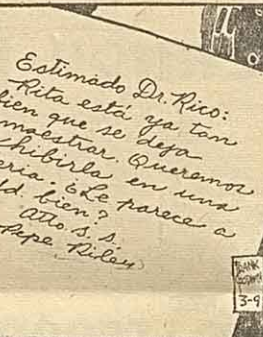 Estimado Dr. Rico:
Rita está ya tan
bien que se deja
maestrar. Queremos
hibirla en una
eria. ¿Le parece a
ld bien?
Atto. S. S.
Pepe Riley
3-9